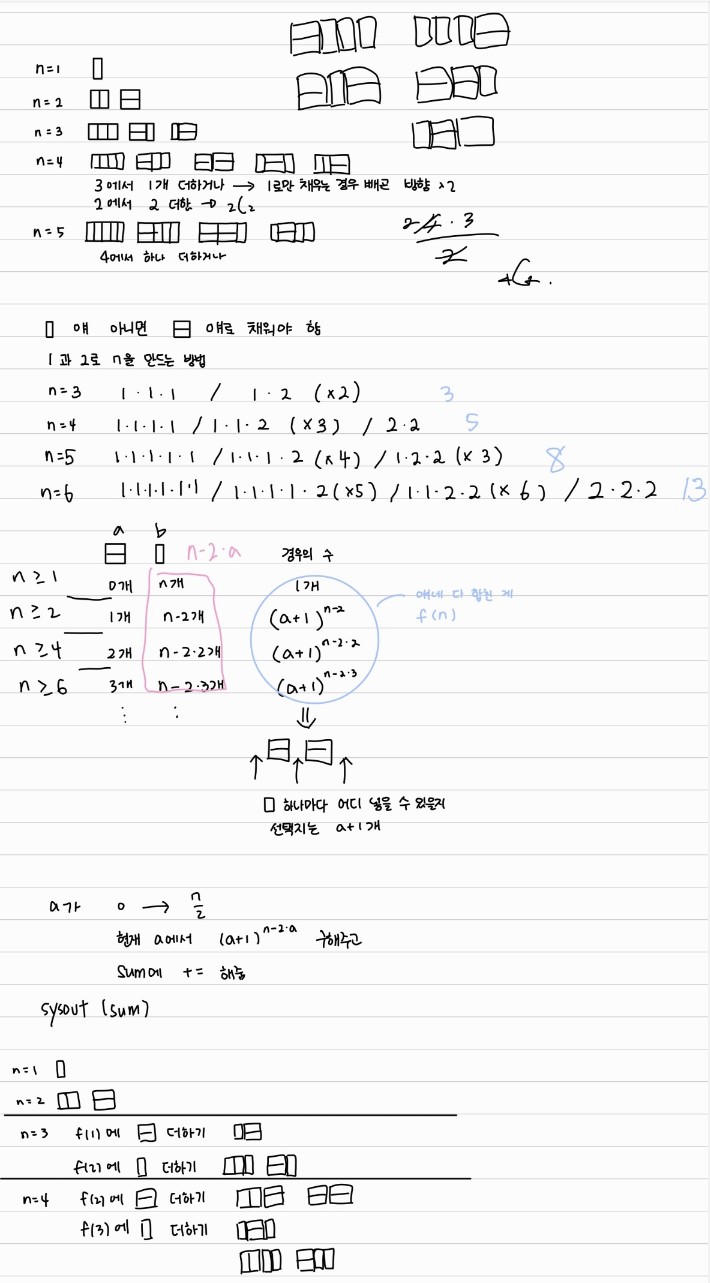 n=1
n=2
n=3
n=4
3에서 1개 더하거나 → 1로만 채우는 경우 빼곤 방향 ×2
2에서 2 더한 → ₂C₂
n=5
4에서 하나 더하거나
2 4 · 3
2
얘 아니면 얘로 채워야 함
1과 2로 n을 만드는 방법
n=3 1·1·1 / 1·2 (×2) 3
n=4 1·1·1·1 / 1·1·2 (×3) / 2·2 5
n=5 1·1·1·1·1 / 1·1·1·2 (×4) / 1·2·2 (×3) 8
n=6 1·1·1·1·1·1 / 1·1·1·1·2 (×5) / 1·1·2·2 (×6) / 2·2·2 13
a b
n-2·a 경우의 수
n≥1 0개 n개 1개
얘네 다 합친 게
f(n)
n≥2 1개 n-2개 (a+1)ⁿ⁻²
n≥4 2개 n-2·2개 (a+1)ⁿ⁻²·²
n≥6 3개 n-2·3개 (a+1)ⁿ⁻²·³
⋮ ⋮ ⇓
↑ ↑ ↑
하나마다 어디 넣을 수 있을지
선택지는 a+1개
a가 0 → n/2
현재 a에서 (a+1)ⁿ⁻²·ᵃ 구해주고
sum에 += 해줌
sysout (sum)
n=1
n=2
n=3 f(1)에 더하기
f(2)에 더하기
n=4 f(2)에 더하기
f(3)에 더하기